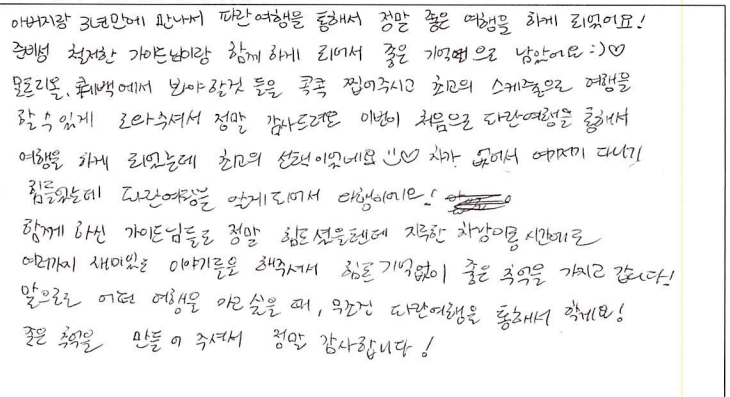 아버지랑 3년만에 만나서 파란여행을 통해서 정말 좋은 여행을 하게 되었어요!
준비성 철저한 가이드님이랑 함께 하게 되어서 좋은 기억으로 남았어요 :)♡
몬트리올, 퀘백에서 봐야할것 들을 콕콕 찝어주시고 최고의 스케줄으로 여행을
할 수 있게 도와주셔서 정말 감사드려요 이번이 처음으로 파란여행을 통해서
여행을 하게 되었는데 최고의 선택이었네요 :)♡ 차가 없어서 여기저기 다니기
힘들었는데 파란여행을 알게되어서 다행이에요!
함께 하신 가이드님들도 정말 힘드셨을텐데 지루한 차량이동시간에도
여러가지 재미있는 이야기들을 해주셔서 힘든기억없이 좋은 추억을 가지고 갑니다!
앞으로도 어떤 여행을 하고 싶을 때, 무조건 파란여행을 통해서 할게요!
좋은 추억을 만들어 주셔서 정말 감사합니다!